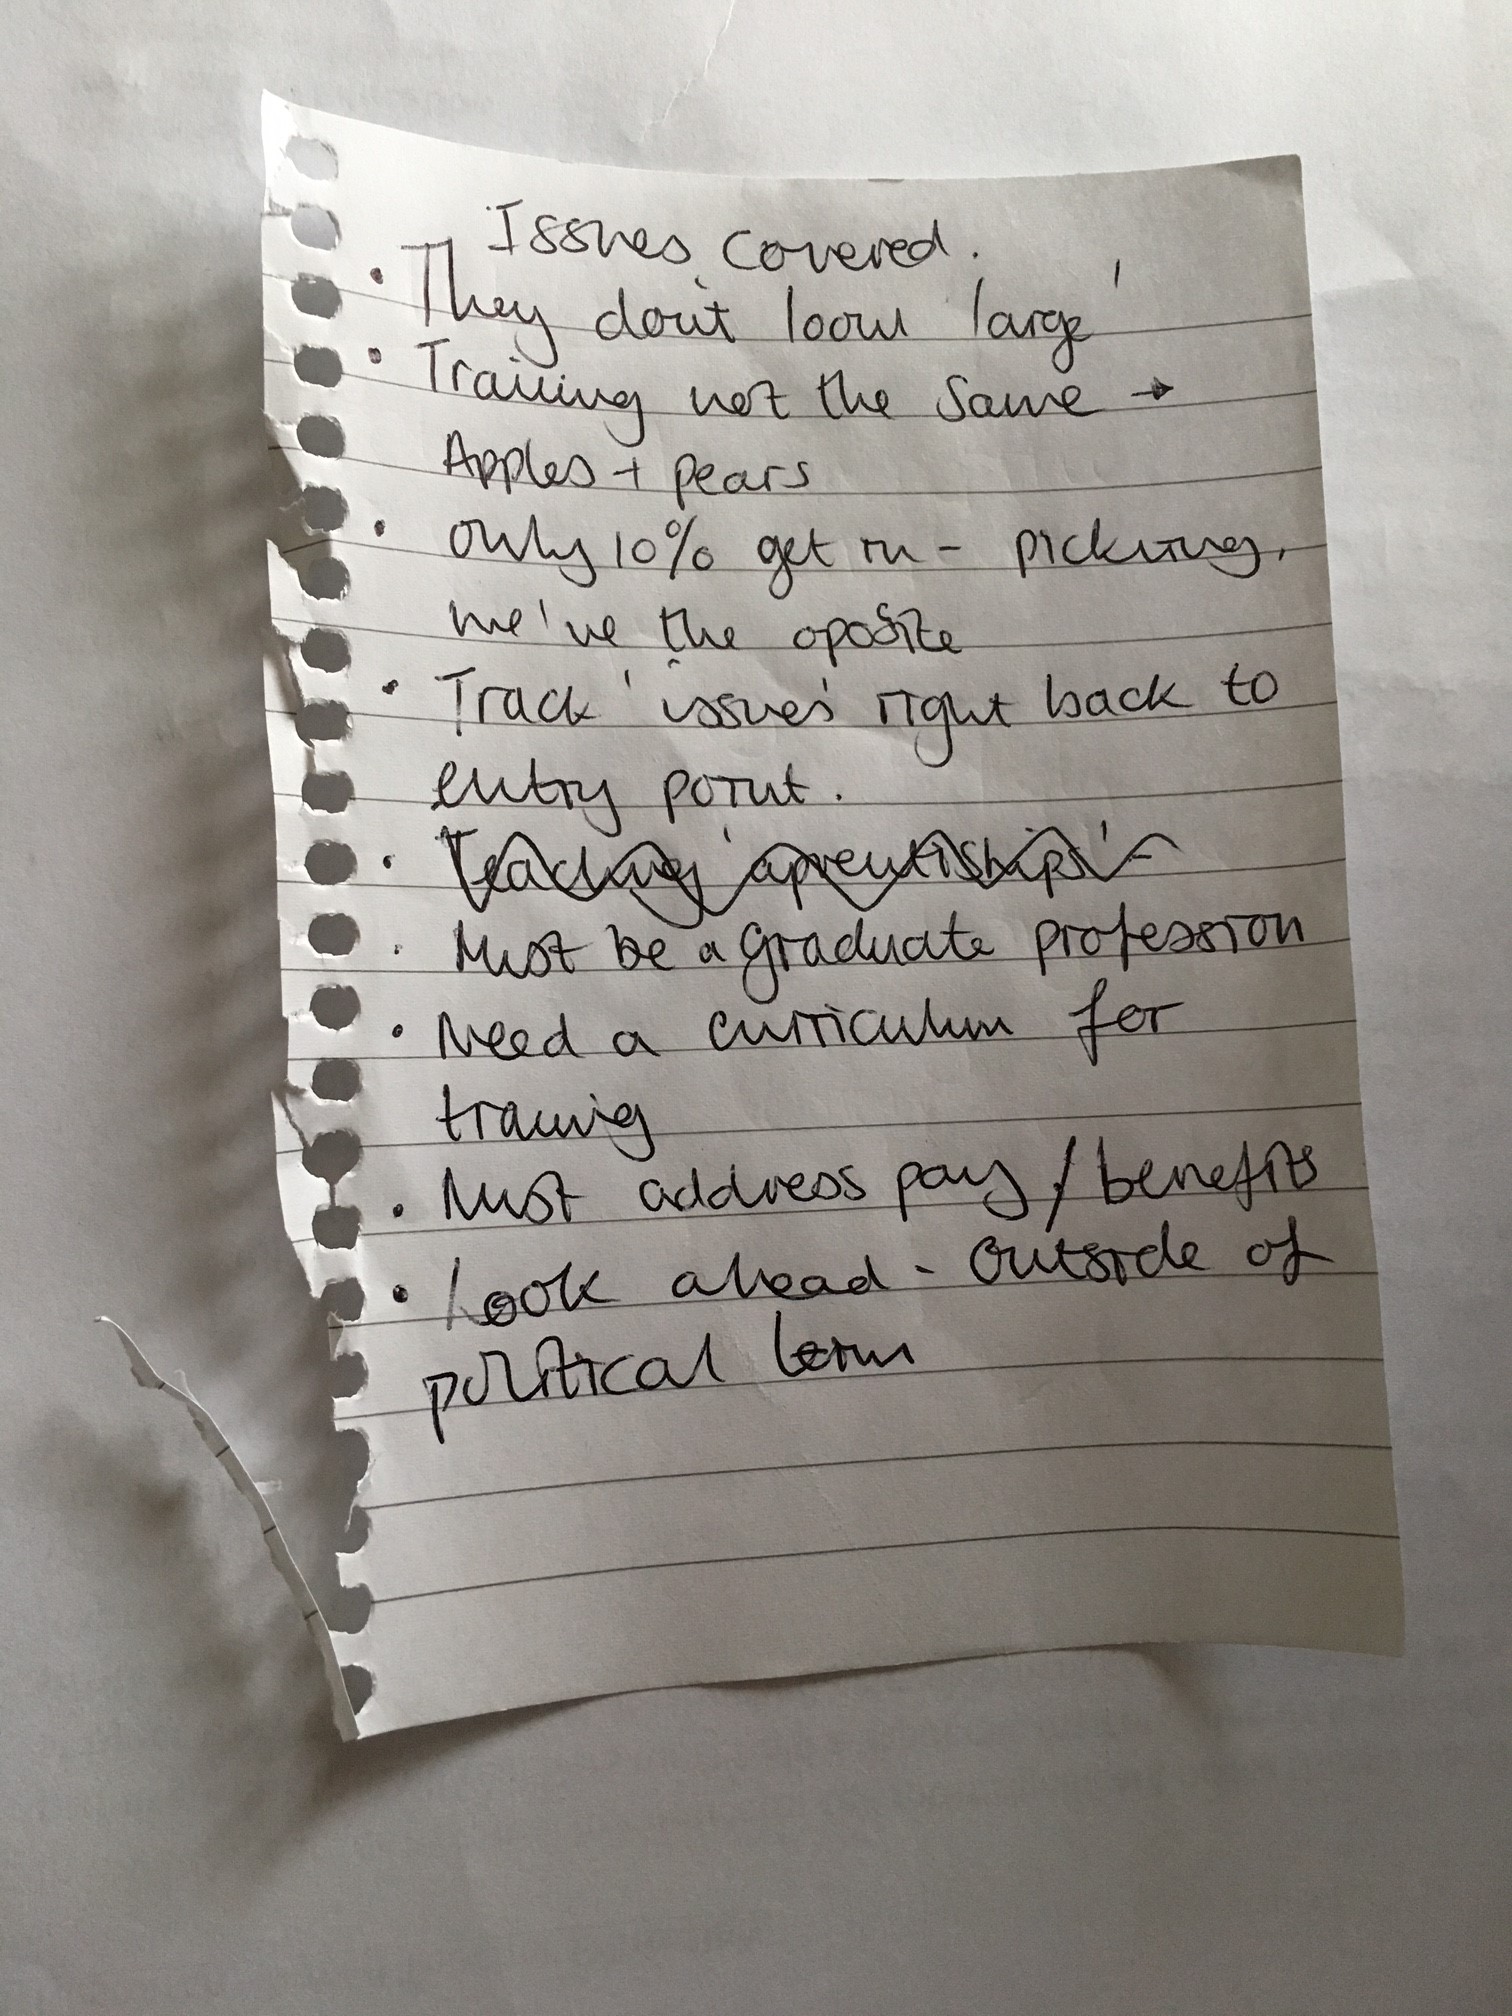 Issues covered.
• They don't loom large'
• Training not the same →
Apples + pears
• only 10% get in - picking,
we've the oposite
• Track 'issues' right back to
entry point.
• Teaching 'aprentiships' -
• Must be a graduate profession
• Need a curriculum for
training
• Must address pay / benefits
• Look ahead - outside of
political term